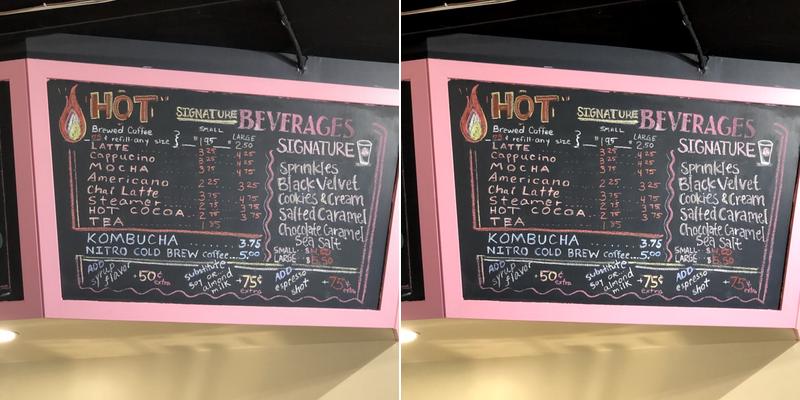 HOT
SIGNATURE BEVERAGES
SMALL LARGE
Brewed Coffee 1.95 2.50
75¢ refill-any size
LATTE 3.25 4.25
Cappucino 3.25 4.25
MOCHA 3.75 4.75
Americano 2.25 3.25
Chai Latte
Steamer 4.75
HOT COCOA 2.75 3.75
TEA 1.95
SIGNATURE
Sprinkles
Black Velvet
Cookies & Cream
Salted Caramel
Chocolate Caramel
Sea Salt
SMALL
LARGE
KOMBUCHA 3.75
NITRO COLD BREW coffee 5.00
ADD syrup flavor +.50¢ extra
substitute soy or almond milk +75¢ extra
ADD espresso shot +75¢ extra
HOT
SIGNATURE BEVERAGES
SMALL LARGE
Brewed Coffee 1.95 2.50
75¢ refill-any size
LATTE 3.25 4.25
Cappucino 3.25 4.25
MOCHA 3.75 4.75
Americano 2.25 3.25
Chai Latte
Steamer 4.75
HOT COCOA 2.75 3.75
TEA 1.95
SIGNATURE
Sprinkles
Black Velvet
Cookies & Cream
Salted Caramel
Chocolate Caramel
Sea Salt
SMALL
LARGE
KOMBUCHA 3.75
NITRO COLD BREW coffee 5.00
ADD syrup flavor +.50¢ extra
substitute soy or almond milk +75¢ extra
ADD espresso shot +75¢ extra